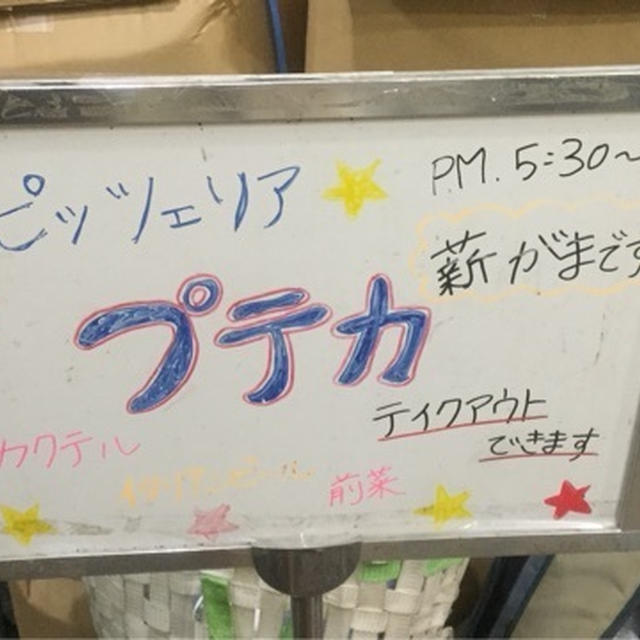 ピッツェリア
P.M. 5:30〜
薪がまです
プテカ
テイクアウト
できます
カクテル
イタリアンビール
前菜